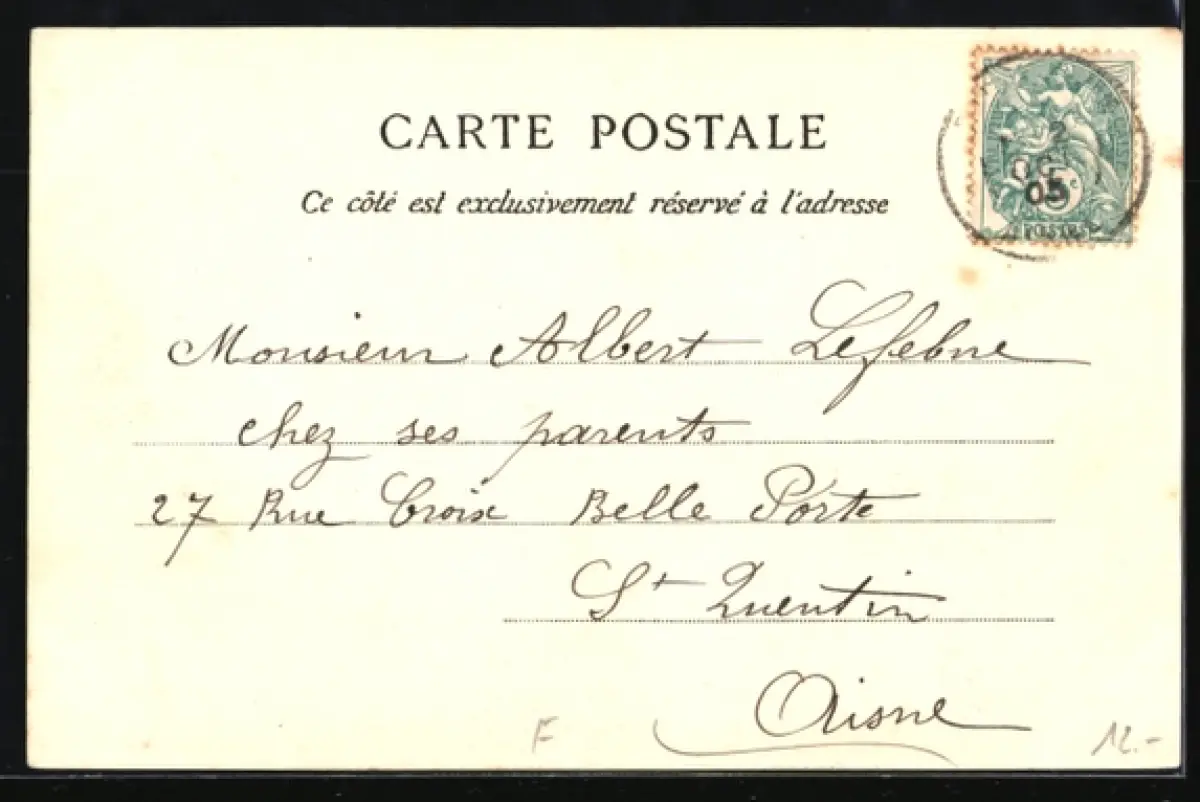 CARTE POSTALE
Ce côté est exclusivement réservé à l'adresse
2
OCT
05
5c
POSTES
Monsieur Albert Lefebvre
chez ses parents
27 Rue Croix Belle Porte
St Quentin
Aisne
F
12.-